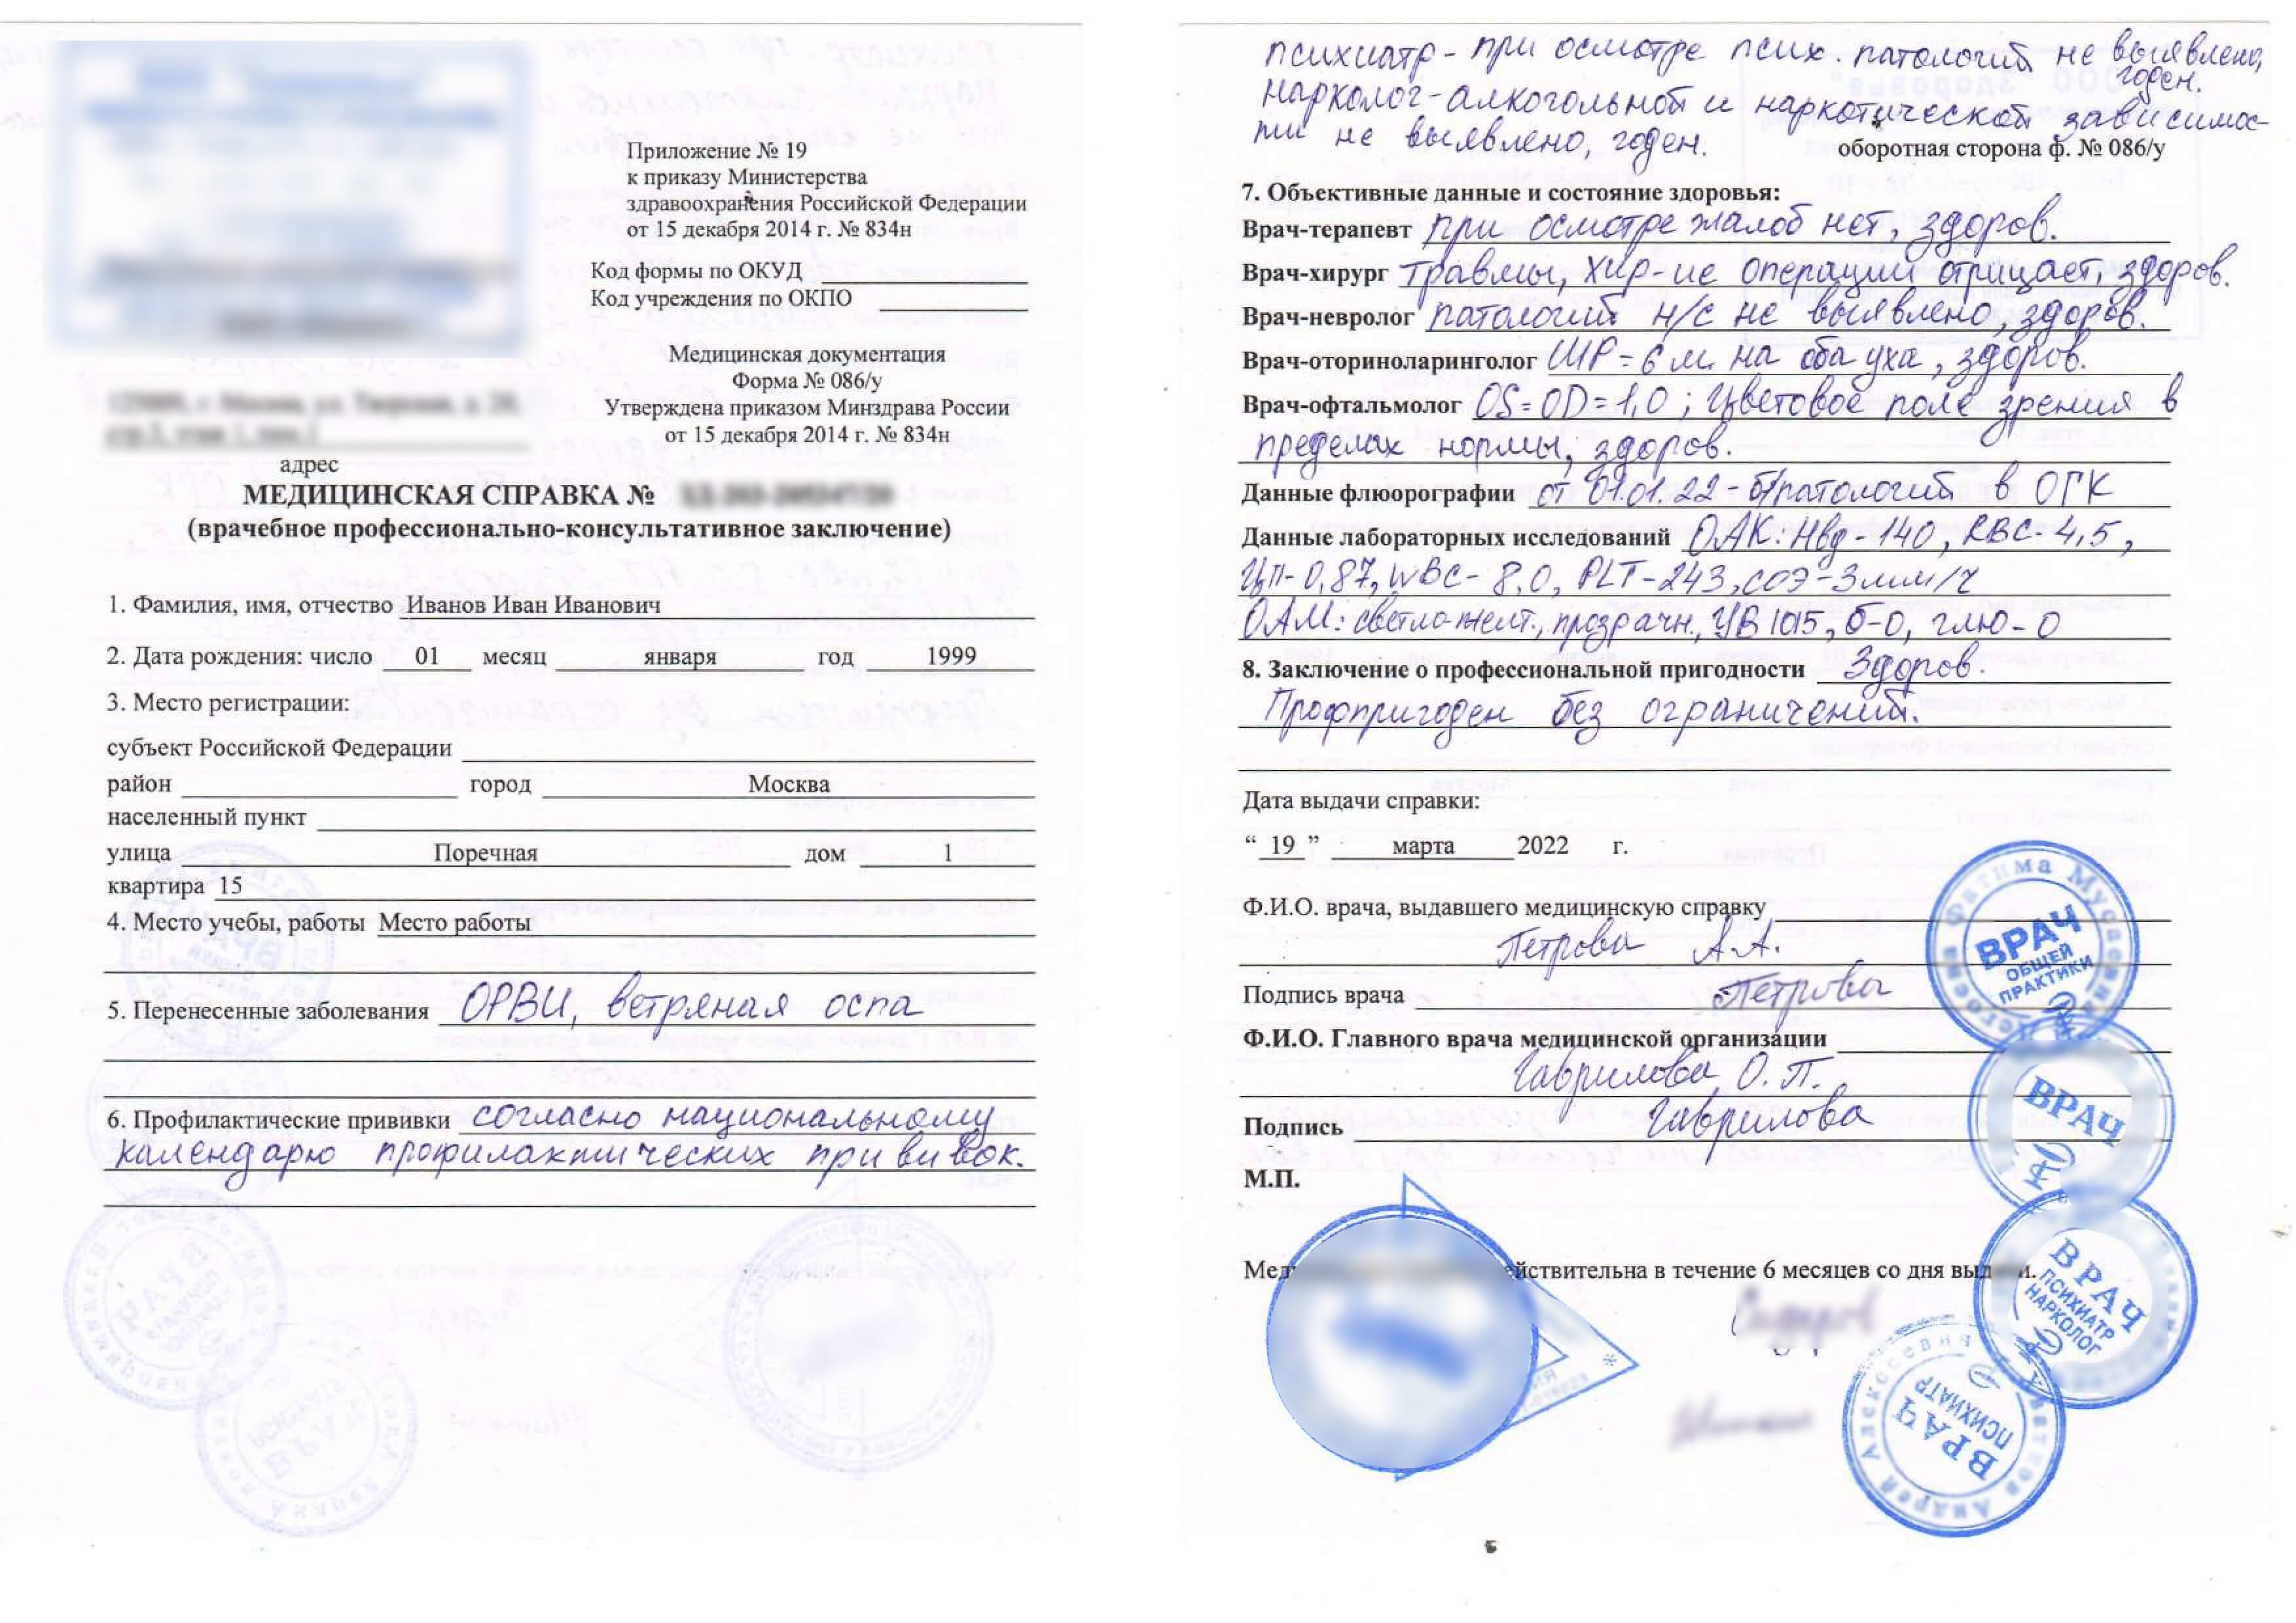 Приложение № 19
к приказу Министерства
здравоохранения Российской Федерации
от 15 декабря 2014 г. № 834н
Код формы по ОКУД
Код учреждения по ОКПО
Медицинская документация
Форма № 086/у
Утверждена приказом Минздрава России
от 15 декабря 2014 г. № 834н
адрес
МЕДИЦИНСКАЯ СПРАВКА №
(врачебное профессионально-консультативное заключение)
1. Фамилия, имя, отчество Иванов Иван Иванович
2. Дата рождения: число 01 месяц января год 1999
3. Место регистрации:
субъект Российской Федерации
район город Москва
населенный пункт
улица Поречная дом 1
квартира 15
4. Место учебы, работы Место работы
5. Перенесенные заболевания ОРВИ, ветряная оспа
6. Профилактические прививки согласно национальному
календарю профилактических прививок.
психиатр - при осмотре псих. патологий не выявлено,
годен.
нарколог - алкогольной и наркотической зависимос-
ти не выявлено, годен.
оборотная сторона ф. № 086/у
7. Объективные данные и состояние здоровья:
Врач-терапевт при осмотре жалоб нет, здоров.
Врач-хирург травмы, хир-ие операции отрицает, здоров.
Врач-невролог патологий н/с не выявлено, здоров.
Врач-оториноларинголог ШР = 6 м на оба уха, здоров.
Врач-офтальмолог OS = OD = 1,0 ; Цветовое поле зрения в
пределах нормы, здоров.
Данные флюорографии от 01.01.22 - б/патологий в ОГК
Данные лабораторных исследований ОАК: Нвд - 140, RBC - 4,5,
ЦП - 0,87, WBC - 8,0, PLT - 243, соэ - 3 мм/ч
ОАМ: светло-желт., прозрачн., УВ 1015, б - 0, глю - 0
8. Заключение о профессиональной пригодности Здоров.
Профпригоден без ограничений.
Дата выдачи справки:
“ 19 ” марта 2022 г.
Ф.И.О. врача, выдавшего медицинскую справку
Петрова А.А.
Подпись врача Петрова
Ф.И.О. Главного врача медицинской организации
Гаврилова О.П.
Подпись Гаврилова
М.П.
действительна в течение 6 месяцев со дня
Сидоров
Фатима Мусаевна
ВРАЧ
ОБЩЕЙ
ПРАКТИКИ
ВРАЧ
ВРАЧ
ПСИХИАТР
НАРКОЛОГ
Андрей Алексеевич
ВРАЧ
ПСИХИАТР